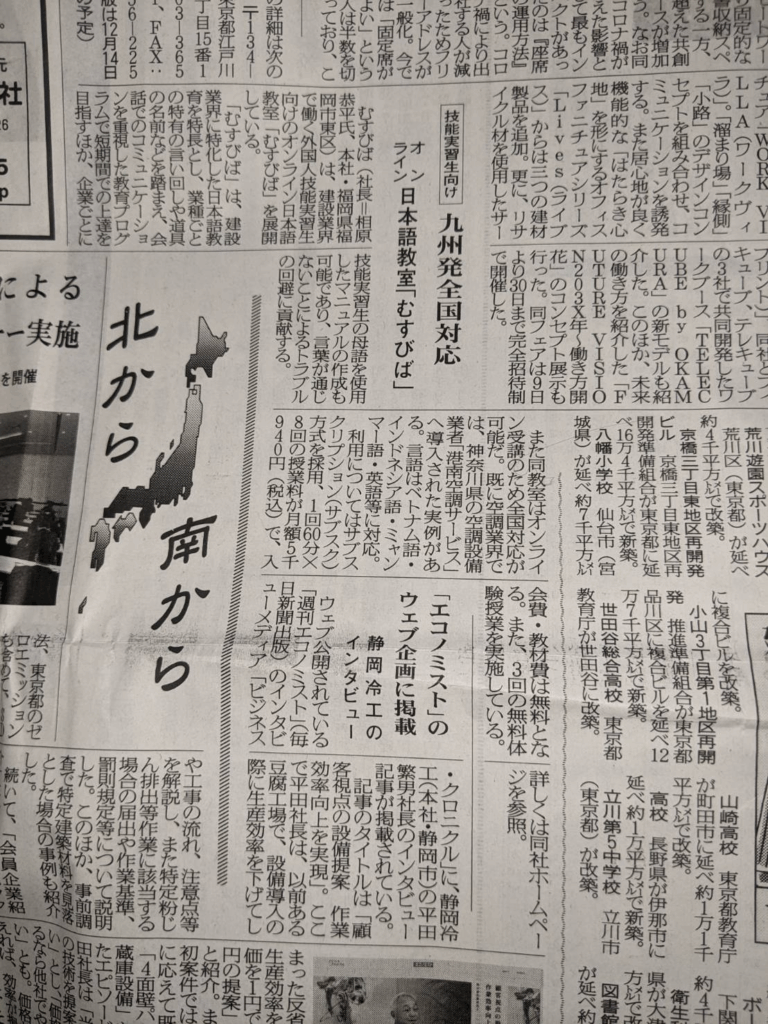 ードワー
り固定的な
書収納スペ
する一方、
超えた共創
ースが増加
う。なお同
コロナ禍が
えた影響と
て最もイン
クトがあっ
たのは『座席
の運用方法』
という。コロ
ナ禍により出
社する人が減
ったためフリ
ーアドレスが
一般化。今で
は「固定席が
よい」という
人は半数を切
っており、こ
の詳細は次の
〒134―
東京都江戸川
丁目15番1
03―365
、FAX：
36―225
版は12月14日
の予定）
チェア「WORK VI
LLA（ワークヴィ
ラ）。「溜まり場」「縁側」
「小路」のデザインコン
セプトを組み合わせ、コ
ミュニケーションを誘発
する。また居心地が良く
機能的な「はたらき心
地」を形にするオフィス
ファニチュアシリーズ
「Lives（ライブ
ス）からは三つの建材
製品を追加。更に、リサ
イクル材を使用したサー
プリント」、同社とフィ
キューブ、テレキューブ
の3社で共同開発したワ
ークブース「TELEC
UBE by OKAM
URA」の新モデルも紹
介した。このほか、未来
の働き方を紹介した「F
UTURE VISIO
N203X年～働き方開
花」のコンセプト展示も
行った。同フェアは9日
より30日まで完全招待制
で開催した。
技能実習生向け
九州発全国対応
オン
ライン
日本語教室「むすびば」
むすびば（社長＝相原
恭平氏、本社・福岡県福
岡市東区）は、建設業界
で働く外国人技能実習生
向けのオンライン日本語
教室「むすびば」を展開
している。
「むすびば」は、建設
業界に特化した日本語教
育を特長とし、業種ごと
の特有の言い回しや道具
の名前などを踏まえ、会
話でのコミュニケーショ
ンを重視した教育プログ
ラムで短期間での上達を
目指すほか、企業ごとに
技能実習生の母語を使用
したマニュアルの作成も
可能であり、言葉が通じ
ないことによるトラブル
の回避に貢献する。
また同教室はオンライ
ン受講のため全国対応が
可能だ。既に空調業界で
は、神奈川県の空調設備
業者「港南空調サービス」
へ導入された実例があ
る。言語はベトナム語・
インドネシア語・ミャン
マー語・英語等に対応。
利用についてはサブス
クリプション（サブスク）
方式を採用、1回60分×
8回の授業料が月額5千
940円（税込）で、入
会費・教材費は無料とな
る。また、3回の無料体
験授業を実施している。
詳しくは同社ホームペー
ジを参照。
北から
南から
による
ー実施
を開催
荒川遊園スポーツハウス
荒川区（東京都）が延べ
約4千平方㍍で改築。
京橋三丁目東地区再開発
ビル　京橋三丁目東地区再
開発準備組合が東京都に延
べ16万4千平方㍍で新築。
八幡小学校　仙台市（宮
城県）が延べ約7千平方㍍
に複合ビルを改築。
小山3丁目第1地区再開
発　推進準備組合が東京都
品川区に複合ビルを延べ12
万7千平方㍍で新築。
世田谷総合高校　東京都
教育庁が世田谷に改築。
山崎高校　東京都教育庁
が町田市に延べ約1万1千
平方㍍で改築。
高校　長野県が伊那市に
延べ約1万平方㍍で新築。
立川第5中学校　立川市
（東京都）が改築。
「エコノミスト」の
ウェブ企画に掲載
静岡冷工の
インタビュー
ウェブ公開されている
「週刊エコノミスト」（毎
日新聞出版）のインタビ
ューメディア「ビジネス
・クロニクル」に、静岡冷
工（本社・静岡市）の平田
繁男社長のインタビュー
記事が掲載されている。
記事のタイトルは「顧
客視点の設備提案　作業
効率向上を実現」。ここ
で平田社長は、以前ある
豆腐工場で、設備導入の
際に生産効率を下げてし
まった反省
生産効率を
価を1円で
円の提案」
と紹介。ま
初案件では
に応えて既
「4面壁パ
蔵庫設備」
たエピソー
田社長は「当
の技術を提案
法、東京都のゼ
ロエミッション
や工事の流れ、注意点等
を解説し、また特定粉じ
ん排出等作業に該当する
場合の届出や作業基準、
罰則規定等について説明
した。このほか、事前調
査で特定建築材料を見落
とした場合の事例も紹介
した。
続いて、「会員企業紹